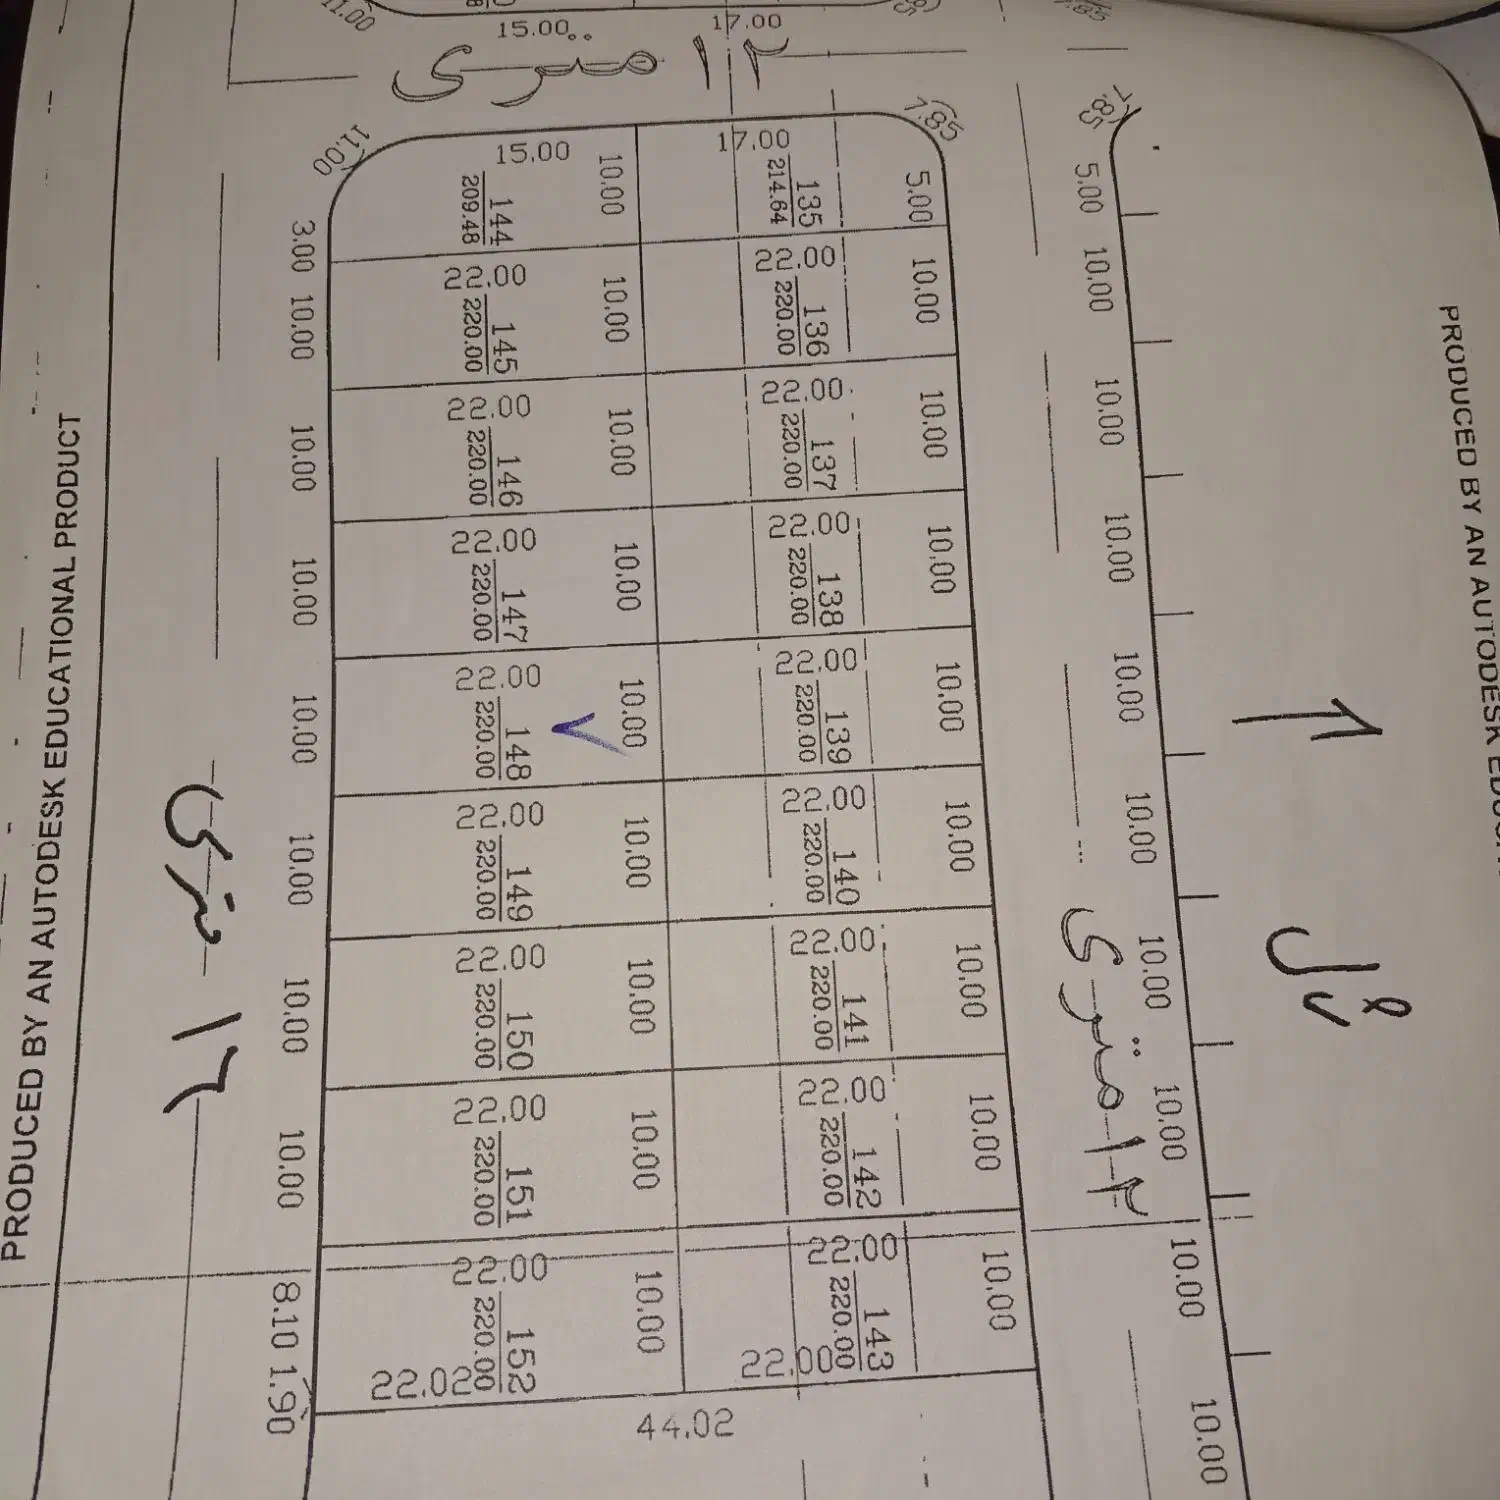 11.00
15.00
17.00
7.85
۱۲ متری
11.00
15.00
10.00
17.00
7.85
7.85
144
209.48
135
214.64
5.00
5.00
3.00
10.00
22.00
145
220.00
10.00
22.00
136
220.00
10.00
10.00
10.00
22.00
146
220.00
10.00
22.00
137
220.00
10.00
10.00
10.00
22.00
147
220.00
10.00
22.00
138
220.00
10.00
10.00
10.00
22.00
148
220.00
10.00
22.00
139
220.00
10.00
10.00
10.00
22.00
149
220.00
10.00
22.00
140
220.00
10.00
10.00
10.00
22.00
150
220.00
10.00
22.00
141
220.00
10.00
10.00
10.00
22.00
151
220.00
10.00
22.00
142
220.00
10.00
10.00
8.10
1.90
22.00
152
220.00
10.00
22.00
143
220.00
10.00
10.00
22.02
22.00
10.00
44.02
۱۶ متری
۱۲ متری
PRODUCED BY AN AUTODESK EDUCATIONAL PRODUCT
PRODUCED BY AN AUTODESK